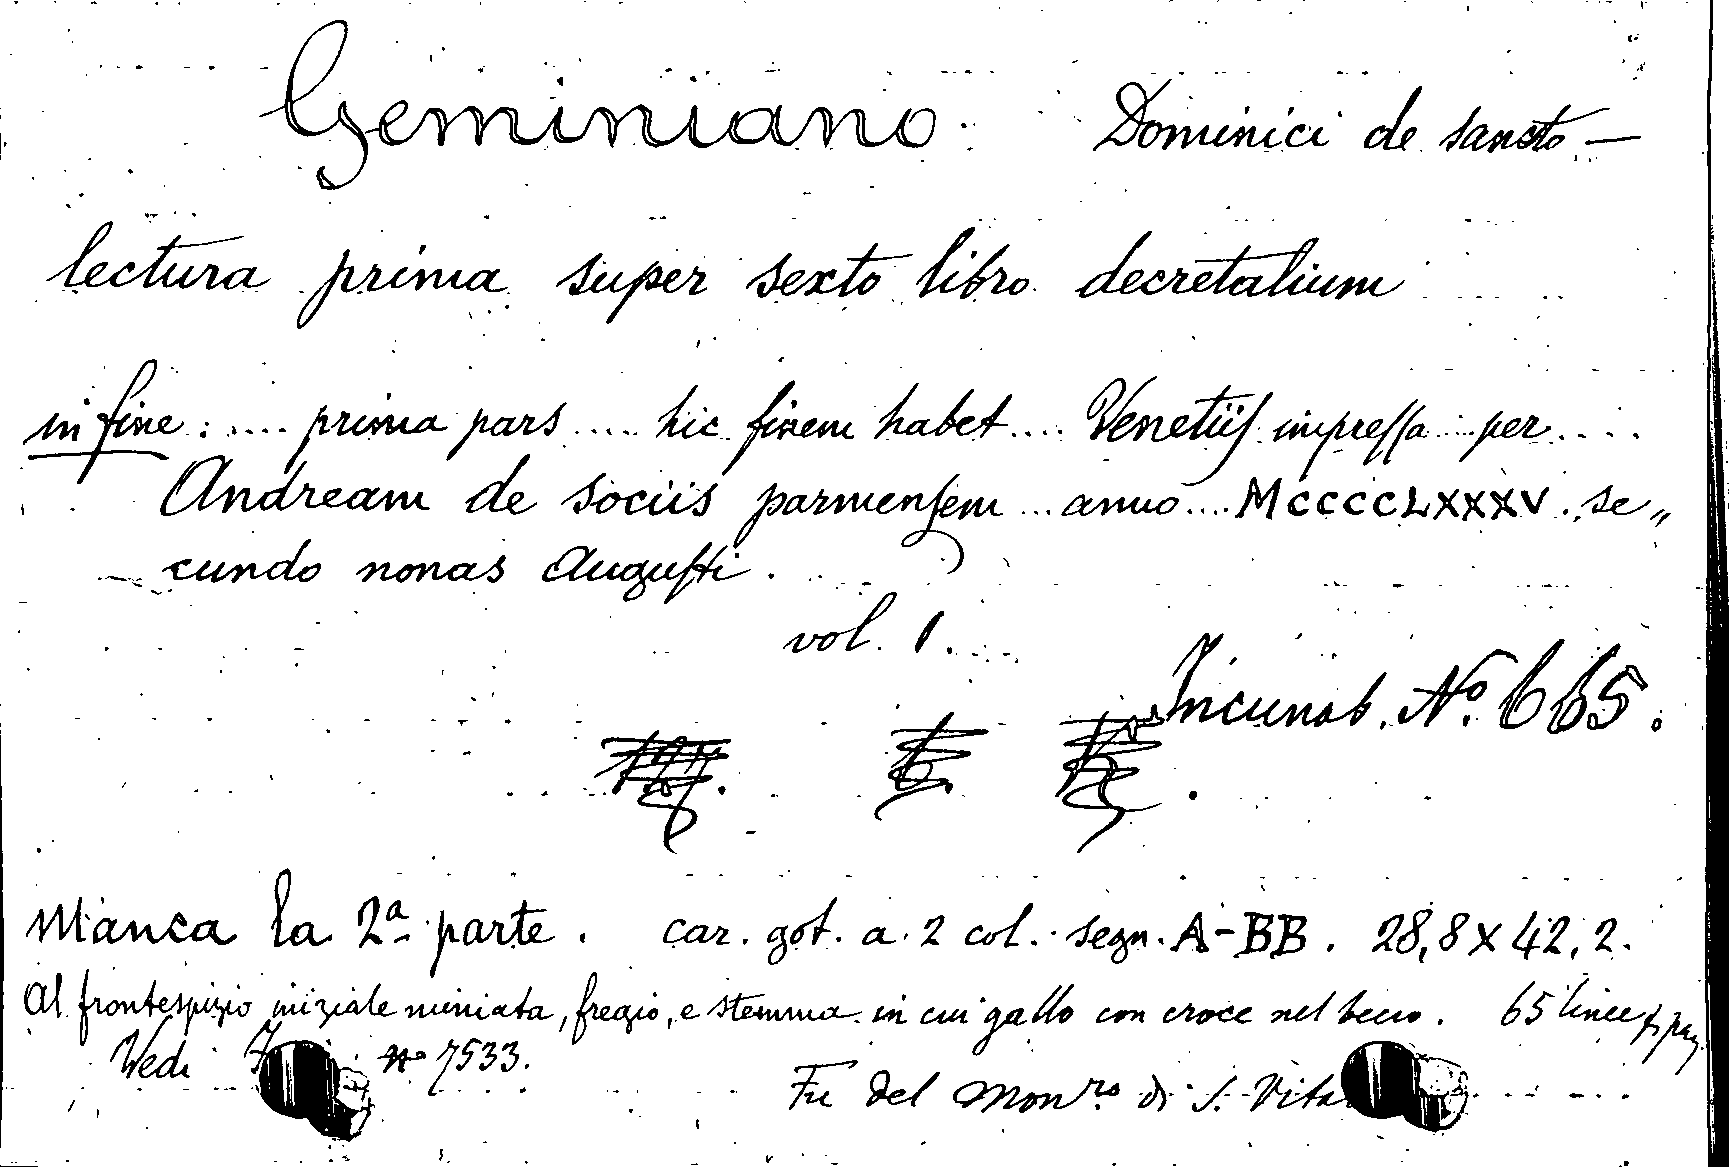 Geminiano Dominici de sancto —
lectura prima super sexto libro decretalium
in fine : .... prima pars .... hic finem habet .... Venetiis impressa per ....
Andream de sociis parmensem ... anno .... MCCCCLXXXV . se„
cundo nonas Augusti .
vol. 1.
Incunab. Nº. 665.
Manca la 2ª parte . car. got. a 2 col. segn. A-BB . 28,8 x 42,2.
Al frontespizio iniziale miniata, fregio, e stemma in cui gallo con croce nel becco . 65 linee
Vedi nº 7533.
Fu del Monro di S.